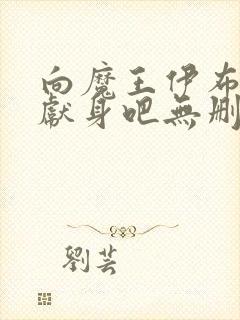 向魔王伊布
獻身吧無刪
劉芸